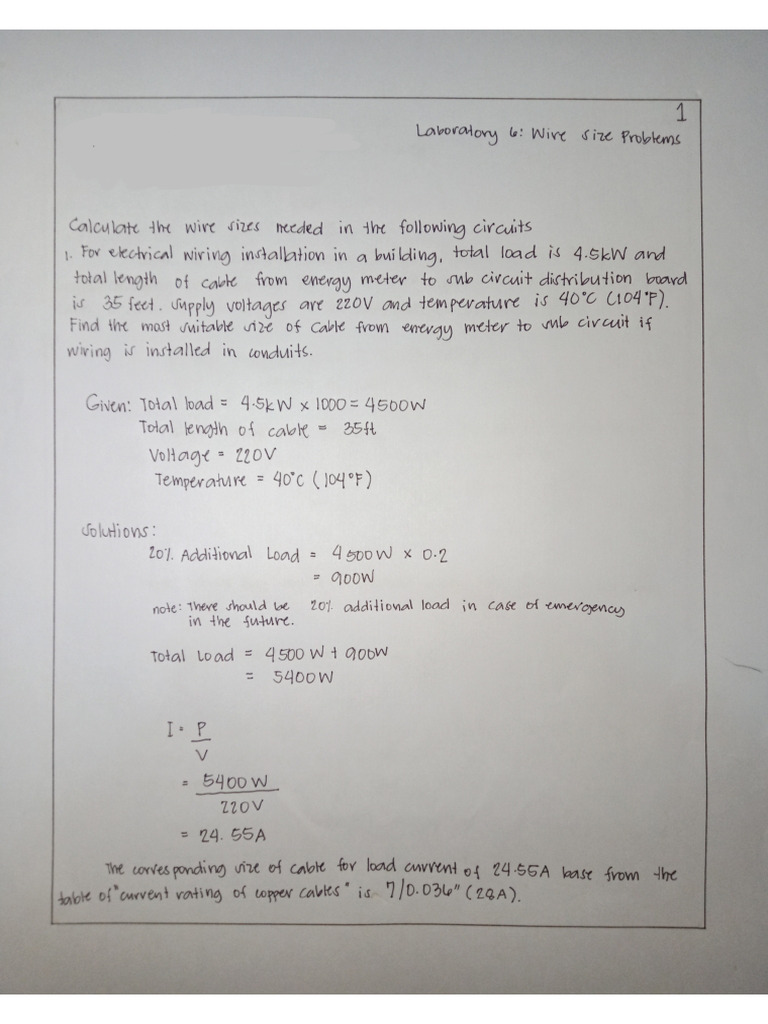 1
Laboratory 6: Wire size Problems
Calculate the wire sizes needed in the following circuits
1. For electrical wiring installation in a building, total load is 4.5kW and
total length of cable from energy meter to sub circuit distribution board
is 35 feet. Supply voltages are 220V and temperature is 40°C (104°F).
Find the most suitable size of Cable from energy meter to sub circuit if
wiring is installed in conduits.
Given: Total load = 4.5kW x 1000 = 4500W
Total length of cable = 35ft
Voltage = 220V
Temperature = 40°C (104°F)
Solutions:
20% Additional Load = 4500W x 0.2
= 900W
note: There should be 20% additional load in case of emergency
in the future.
Total Load = 4500 W + 900W
= 5400W
I = P
V
= 5400 W
220V
= 24.55A
The corresponding size of cable for load current of 24.55A base from the
table of "current rating of copper cables" is 7/0.036" (28A).